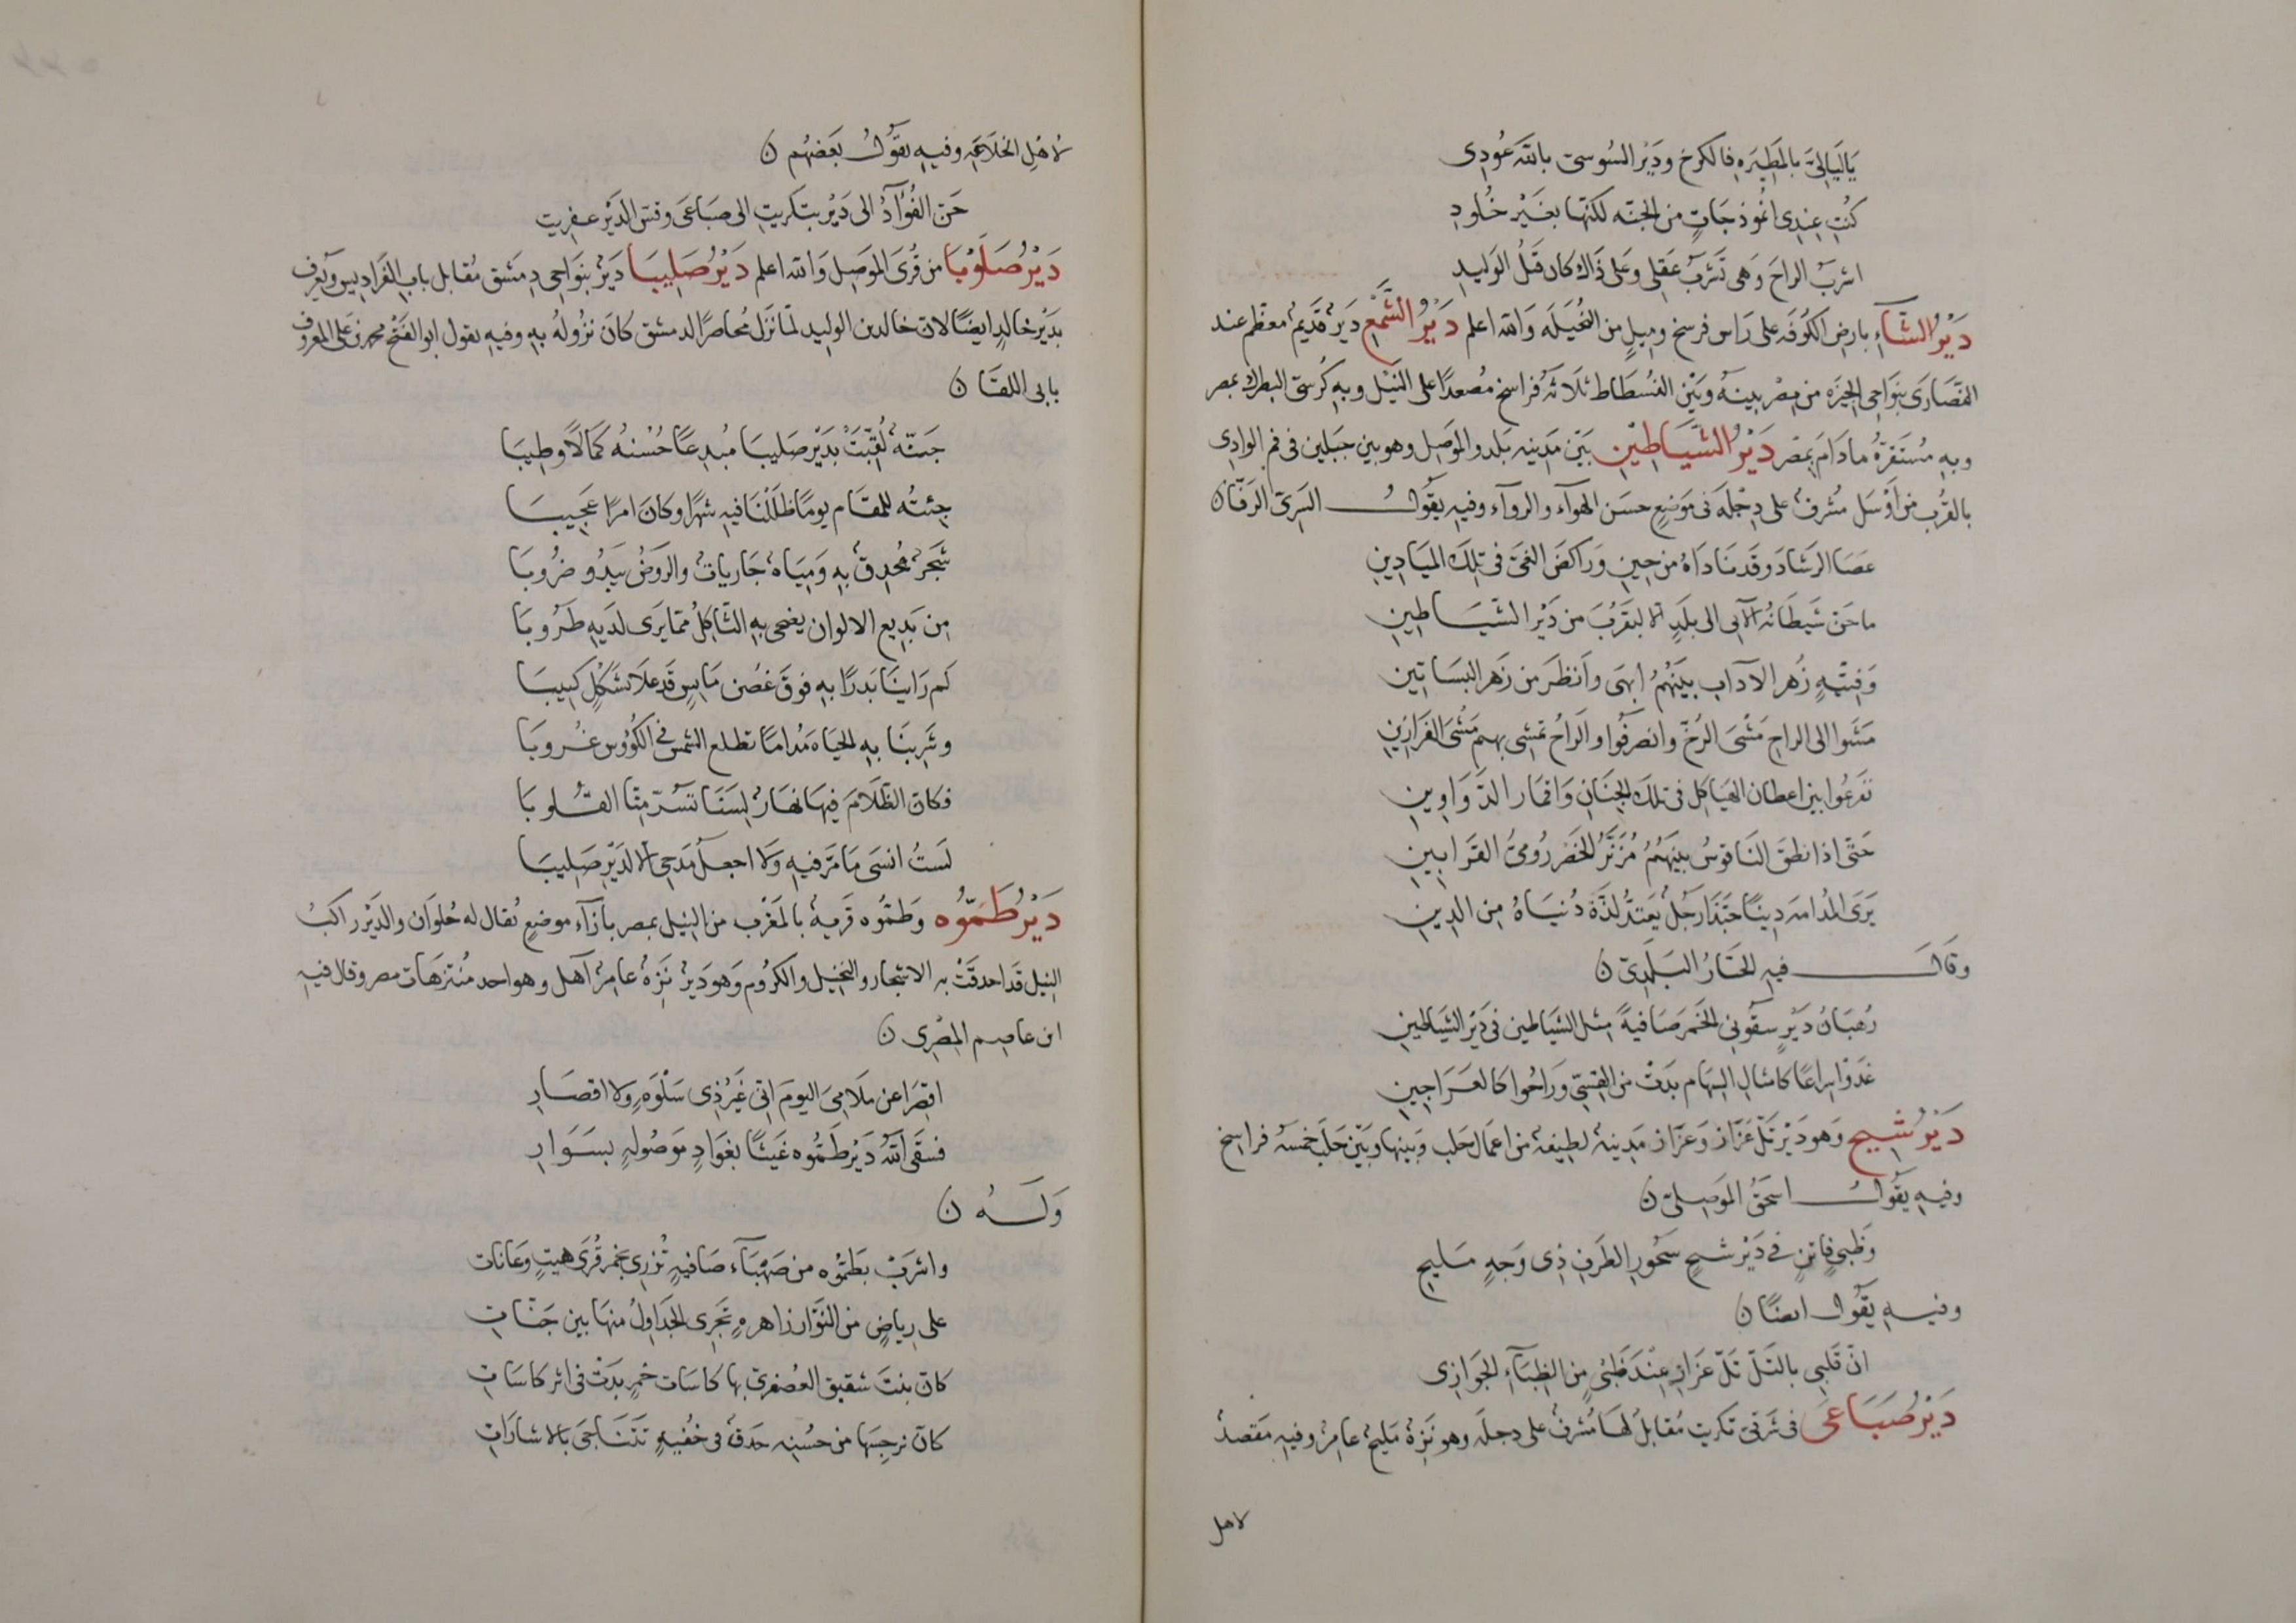 يَا لَيَالِيَّ بالمَطِيَره فالكرخ ودَيْر السُوسىّ بالله عُودى
كُنتِ عِندِى انُموذجَاتٍ من الجنّه لكنّها بغَيْر خُلودِ
اشربُ الراحَ وَهى تَشربُ عَقلى وعَلى ذَاك كان قَتلُ الوَليدِ
دَيْرُ الشَّآءِ بارضِ الكُوفَه على رَاس فرسخ ومِيلٍ من النُخَيلَه وَالله اعلم دَيْرُ الشَّمْعِ دَيرٌ قَديمٌ معظّم عند
النصَارَى بنَواحِى الجيزَه من مِصْر بينهُ وبَيْن الفُسطَاط ثلاثهُ فراسخ مُصعدًا على النيْل وبهِ كُرسىّ البطرك بمصر
وبهِ مُستَقرّهُ ما دَامَ بمصْر دَيْرُ الشّيَاطيْنِ بَيْن مَدِينه بَلد والموَصِل وهو بين جبَلين فى فم الوادِى
بالقرُب من اَوْسَل مُشرفٌ على دِجْلَه فى مَوضِعٍ حسَن الهوَآء والروآء وفيهِ يقُولُ السَرىّ الرفّا ن
عصَا الرشَادَ وقَد نَادَاهُ من حِينِ وَرَاكضَ الغىَّ فى تِلكَ الميَادِينِ
ما حَنّ شَيطَانُه الآتى الى بلَدٍ الا ليقرُبَ من دَيْر الشّيَاطِينِ
وَفِتْيَهٍ زُهر الآدَابِ بينَهُمُ ابهَى واَنظَر من زَهر البسَاتِين
مَشَوا الى الراحِ مَشْىَ الرُخّ وانصرفُوا والرَاحُ تَمشِى بهِم مَشْىَ الفَرازِينِ
تفرعُوا بين اعطان الهيَاكِل فى تلكَ الجِنَانِ وَاقمَار الدّوَاوِينِ
حَتّى اذا نطقَ النَاقوسُ بينَهُمُ مُزَنَّرُ الخَصْر رُومىُّ القرَابين
يَرَى المُدامَه دِينًا حَبّذا رَجلٌ يَعتدُّ لذّةَ دُنيَاهُ مِن الدِينِ
وقالَ فيهِ الخَبّازُ البَلَدِىّ ن
رُهبَانُ دَيْرٍ سقَونى الخمرَ صَافيةً مِثل الشيَاطين فى دَيْر الشيَاطينِ
غدَوْا سِراعًا كامثالِ السِهَام بدَتْ من القِسِىّ وَرَاحُوا كالعَرَاجِينِ
دَيْرُ شِيحٍ وَهو دَيْر تَلّ عَزّاز وَعَزّاز مَدينةٌ لطيفةٌ من اعمَال حَلب وَبينها وبَيْن حَلَب خمسَه فراسخ
وفيهِ يَقُولُ اسحقُ الموَصِلىّ ن
وَظَبىٍ فاتنٍ فى دَيْر شيحٍ سَحُورِ الطَرفِ ذِى وَجهٍ مَليحٍ
وفيهِ يَقُول ايضًا ن
انّ قَلبى بالتَلّ تَلّ عَزازِ عِنْدَ ظَبىٍ مِن الظِبَآءِ الجَوَازِى
دَيْرُ صَبَاعَى فى شَرقىّ تكريت مُقابلٌ لهَا مُشرفٌ على دجلَه وهو نَزِهٌ مَليحٌ عامِرٌ وفيهِ مَقصدٌ
لاهل
لاهْلِ الخلَاعَهِ وفيهِ يقُولُ بَعضهُم ن
حَنّ الفُؤآدُ الى دَيْر بتكريتِ الى صَبَاعَى وقسّ الدَيْر عفريتِ
دَيْرُ صَلُوْبَا من قُرَى الموَصِل وَالله اعلم دَيْرُ صَلِيبَا دَيْرٌ بنوَاحِى دِمَشق مُقابل باب الفَرَادِيس ويُعرف
بدَيْر خالدٍ ايضًا لانّ خالد بن الوليد لمّا نزَل مُحاصرًا لدمشق كانَ نزُولهُ بهِ وفيهِ يقول ابو الفتْح محمد بن على المعروف
بابى اللقَا ن
جَنّهٌ لُقّبَتْ بدَيْر صَليبَا مُبدِعًا حُسْنهُ كمَالًا وطِيبَا
جِئتُه للمقَام يومًا فظَلْنا فيهِ شهرًا وكانَ امرًا عَجيبَا
شَجرٌ مُحدِقٌ بهِ وَمِيَاهٌ جَارياتٌ والروَضُ يَبدُو ضرُوبَا
مِن بَديع الالوان يضحى بهِ الثّاكلُ ممّا يَرَى لديهِ طَرُوبَا
كم رَاينَا بَدرًا بهِ فوقَ غصُن مَايسٍ قد علَا بشَكلٍ كثيبَا
وشَرِبنَا بهِ الحيَاه مُدامًا تطلع الشمسَ فى الكُؤوس غُرُوبَا
فكانّ الظَلَامَ فيهَا نهَارٌ لسَنَا تَسُرّ مِنّا القُلوبَا
لَستُ انسَى مَا مَرّ فيهِ وَلا اجعلُ مَدحِى الا لدَيْرِ صَليبَا
دَيْرُ طَمَوُّه وَطمَوُّه قَريهٌ بالمغَرْب من النِيل بمصر بازآء موضعٍ يُقال له حُلوَان والدَيْر راكبُ
النيل قد احدقَتْ به الاشجار والنخيل والكرُوم وَهو دَيْرٌ نَزِهٌ عامِرٌ آهل وهو احد مُنتزهَات مصر وقال فيهِ
ابن عاصِم المِصْرِى ن
اقِصرَا عن مَلامِىَ اليومَ انّى غَيْرُ ذِى سَلْوَهٍ ولا اقصَارِ
فسقَى اللهُ دَيْر طَمَوُّه غَيثًا بغوَادٍ مَوصُولهٍ بسَوَارِ
وَلَهُ ن
واشرَبْ بطَمُّوه من صَهْبَآء صَافيهٍ تُزرِى بخمر قُرَى هيتٍ وَعَانات
على رِياضٍ من النَوّار زاهره تَجرِى الجدَاوِلُ منهَا بين جَنّاتِ
كانّ بنتَ شقيق العُصفرىّ بها كاسَات خمرٍ بدَتْ فى اثر كاسَاتِ
كانّ نرجسَها من حسُنهِ حدَقٌ فى خفُيهٍ تتنَاجَى بالاشارَاتِ